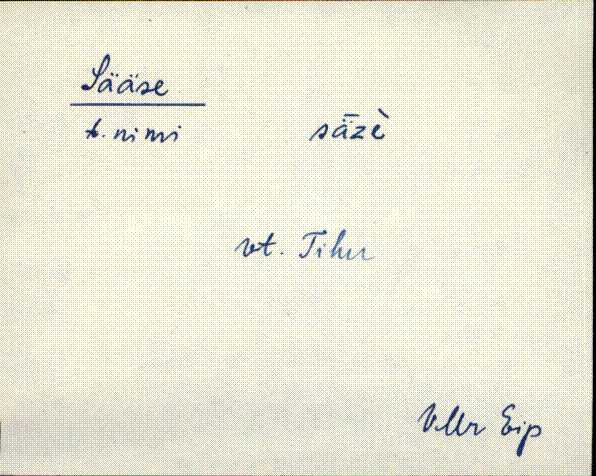 Sääse
t. nimi sǟzè
vt. Tihu
Vllr Eip